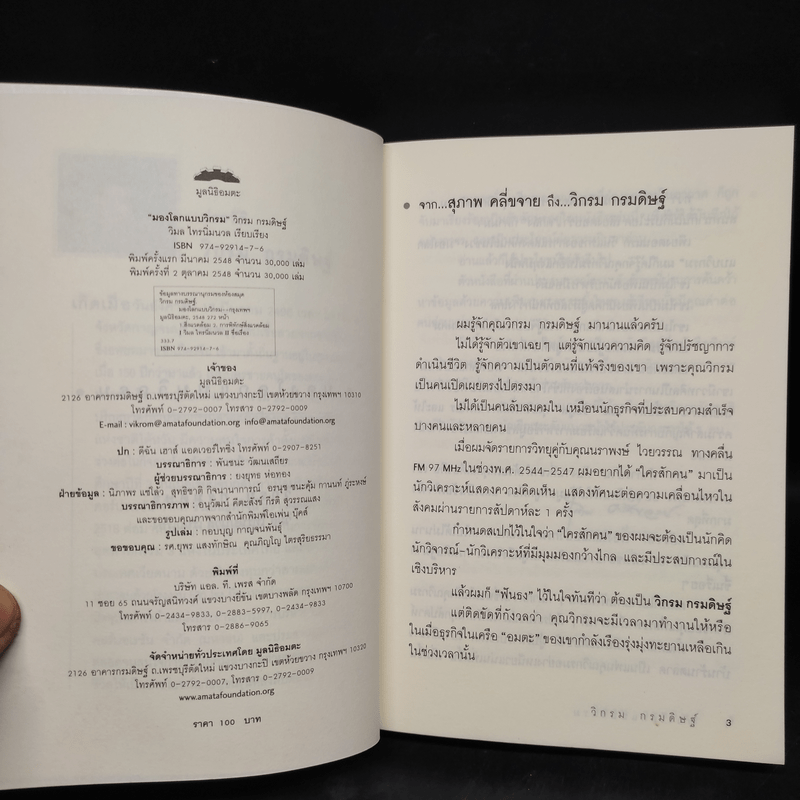 มูลนิธิอมตะ
"มองโลกแบบวิกรม" วิกรม กรมดิษฐ์
วิมล ไทรนิ่มนวล เรียบเรียง
ISBN 974-92914-7-6
พิมพ์ครั้งแรก มีนาคม 2548 จำนวน 30,000 เล่ม
พิมพ์ครั้งที่ 2 ตุลาคม 2548 จำนวน 30,000 เล่ม
ข้อมูลทางบรรณานุกรมของหอสมุด
วิกรม กรมดิษฐ์.
มองโลกแบบวิกรม--กรุงเทพฯ
มูลนิธิอมตะ, 2548 272 หน้า
1 สิ่งแวดล้อม 2. การพิทักษ์สิ่งแวดล้อม
I วิมล ไทรนิ่มนวล II ชื่อเรื่อง
333.7
ISBN 974-92914-7-6
เจ้าของ
มูลนิธิอมตะ
2126 อาคารกรมดิษฐ์ ถ.เพรชบุรีตัดใหม่ แขวงบางกะปิ เขตห้วยขวาง กรุงเทพฯ 10310
โทรศัพท์ 0-2792-0007 โทรสาร 0-2792-0009
E-mail : vikrom@amatafoundation.org info@amatafoundation.org
ปก : ดีฉัน เฮาส์ แอดเวอร์ไทซิ่ง โทรศัพท์ 0-2907-8251
บรรณาธิการ : พันชนะ วัฒนเสถียร
ผู้ช่วยบรรณาธิการ : ยงยุทธ ห่อทอง
ฝ่ายข้อมูล : นิภาพร แซ่ไล้ว สุทธิชาติ กิจนานาการณ์ อรนุช ชนะคุ้ม กานนท์ ภู่ระหงษ์
บรรณาธิการภาพ : อนุวัฒน์ คีตะสังข์ กีรติ สุวรรณแสง
และขอขอบคุณภาพจากสำนักพิมพ์โอเพ่น บุ๊คส์
รูปเล่ม : กอบบุญ กาญจนพันธุ์
ขอขอบคุณ : รศ.ยุพร แสงทักษิณ คุณภิญโญ ไตรสุริยธรรมา
พิมพ์ที่
บริษัท แอล. ที. เพรส จำกัด
11 ซอย 65 ถนนจรัญสนิทวงศ์ แขวงบางยี่ขัน เขตบางพลัด กรุงเทพฯ 10700
โทรศัพท์ 0-2434-9833, 0-2883-5997, 0-2434-9833
โทรสาร 0-2886-9065
จัดจำหน่ายทั่วประเทศโดย มูลนิธิอมตะ
2126 อาคารกรมดิษฐ์ ถ.เพชรบุรีตัดใหม่ แขวงบางกะปิ เขตห้วยขวาง กรุงเทพฯ 10320
โทรศัพท์ 0-2792-0007, โทรสาร 0-2792-0009
www.amatafoundation.org
ราคา 100 บาท
จาก...สุภาพ คลี่ขจาย ถึง...วิกรม กรมดิษฐ์
ผมรู้จักคุณวิกรม กรมดิษฐ์ มานานแล้วครับ
ไม่ได้รู้จักตัวเขาเฉยๆ แต่รู้จักแนวความคิด รู้จักปรัชญาการ
ดำเนินชีวิต รู้จักความเป็นตัวตนที่แท้จริงของเขา เพราะคุณวิกรม
เป็นคนเปิดเผยตรงไปตรงมา
ไม่ได้เป็นคนลับลมคมใน เหมือนนักธุรกิจที่ประสบความสำเร็จ
บางคนและหลายคน
เมื่อผมจัดรายการวิทยุคู่กับคุณนราพงษ์ ไวยวรรณ ทางคลื่น
FM 97 MHz ในช่วงพ.ศ. 2544-2547 ผมอยากได้ "ใครสักคน" มาเป็น
นักวิเคราะห์แสดงความคิดเห็น แสดงทัศนะต่อความเคลื่อนไหวใน
สังคมผ่านรายการสัปดาห์ละ 1 ครั้ง
กำหนดสเปกไว้ในใจว่า "ใครสักคน" ของผมจะต้องเป็นนักคิด
นักวิจารณ์-นักวิเคราะห์ที่มีมุมมองกว้างไกล และมีประสบการณ์ใน
เชิงบริหาร
แล้วผมก็ "ฟันธง" ไว้ในใจทันทีว่า ต้องเป็น วิกรม กรมดิษฐ์
แต่ติดขัดที่กังวลว่า คุณวิกรมจะมีเวลามาทำงานให้หรือ
ในเมื่อธุรกิจในเครือ "อมตะ" ของเขากำลังเรืองรุ่งมุ่งทะยานเหลือเกิน
ในช่วงเวลานั้น
วิกรม กรมดิษฐ์ 3